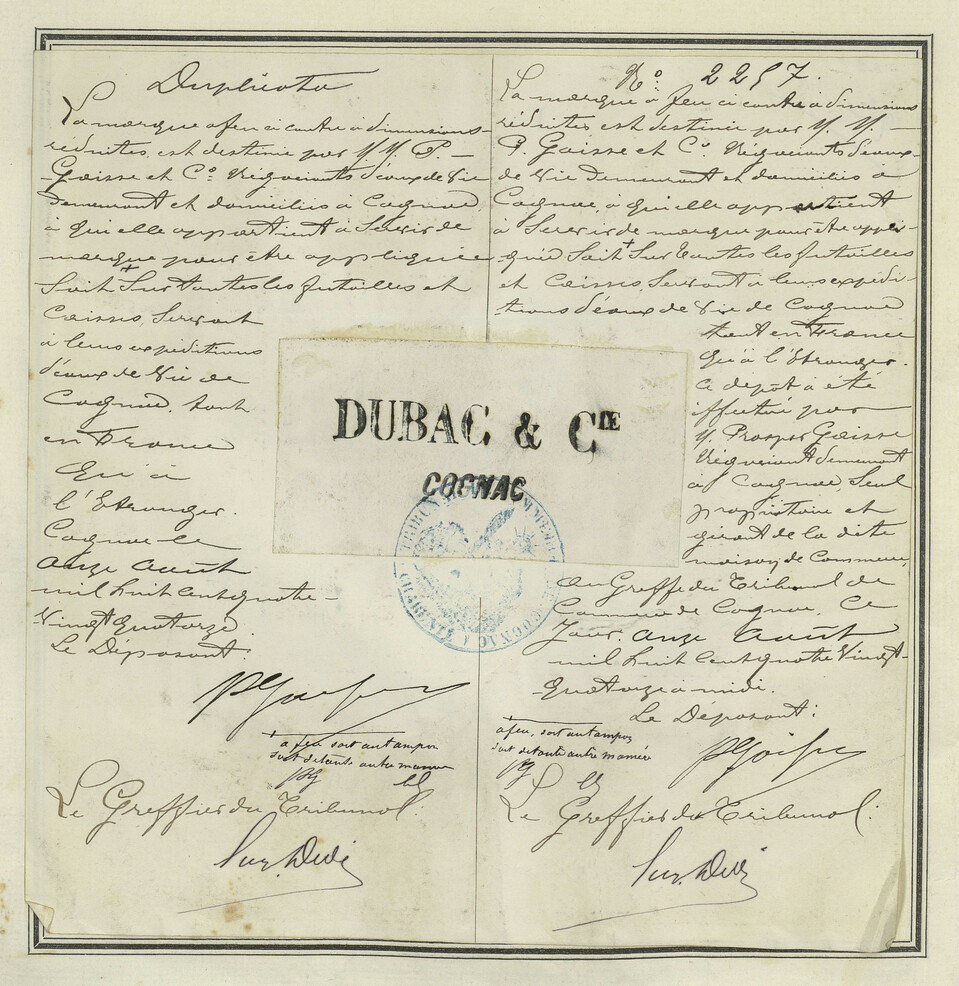 Duplicata
La marque a feu ci contre à dimensions
réduites, est destinée par M M P. —
Gaisse et Cº. Négociants d'eaux de Vie
Demeurant et domiciliés à Cognac,
à qui elle appartient à Servir de
marque pour être appliquée
Soit + Sur toutes les futailles et
Caisses, Servant
à leurs expéditions
d'eaux de Vie de
Cognac, tant
en France
Qu'à
l'Etranger.
Cognac le
onze août
mil huit cent quatre-
Vingt Quatorze.
Le Déposant:
+ a feu, soit au tampon
soit de toute autre manière
PG
Le Greffier du Tribunal:
Nº. 2257.
La marque à feu ci contre à dimensions
réduites, est destinée par M. M. —
P. Gaisse et Cº. Négociants d'eaux-
de Vie Demeurant et domiciliés à
Cognac, à qui elle appartient
à Servir de marque pour être appli-
quée Soit + Sur toutes les futailles
et Caisses, Servant à leurs expédi-
tions d'eaux de Vie de Cognac
tant en France
Qu'à l'Etranger.
Ce dépôt a été
effectué par
M. Prosper Gaisse
Négociant demeurant
à Cognac, Seul
propriétaire et
gérant de la dite
maison de Commerce,
Au Greffe du Tribunal de
Commerce de Cognac, Ce
Jour, onze août
mil huit cent quatre Vingt-
Quatorze à midi.
Le Déposant:
+ a feu, soit au tampon
soit de toute autre manière
PG
Le Greffier du Tribunal:
DUBAC & CIE
COGNAC